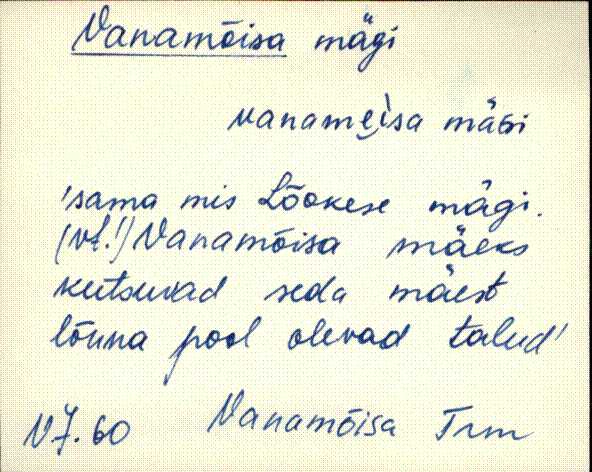 Vanamõisa mägi
vanameisa mäGi
'sama mis Lõokese mägi.
(vt.!) Vanamõisa mäeks
kutsuvad seda mäest
lõuna pool olevad talud'
Vanamõisa Trm